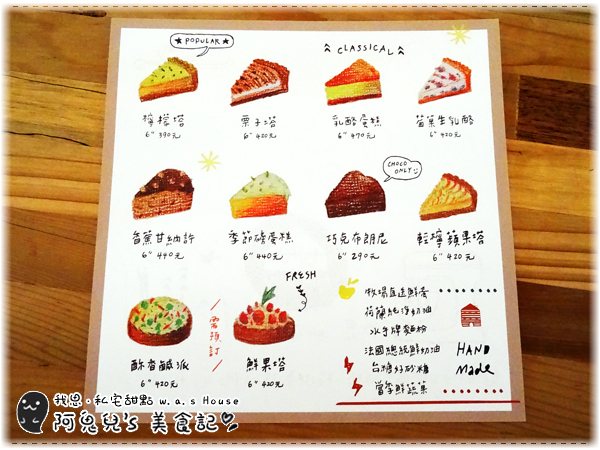 POPULAR
CLASSICAL
檸檬塔
6" 390元
栗子塔
6" 420元
乳酪蛋糕
6" 470元
藍莓生乳酪
6" 420元
CHOCO ONLY
香蕉甘納許
6" 440元
季節磅蛋糕
6" 440元
巧克布朗尼
6" 290元
輕檸蘋果塔
6" 420元
FRESH
需預訂
酥香鹹派
6" 420元
鮮果塔
6" 420元
牧場直送鮮蛋
荷蘭純淨奶油
水手牌麵粉
法國總統鮮奶油
台糖好砂糖
當季鮮蔬菓
HAND
made
我思‧私宅甜點 w.a.s House
阿兒's 美食記